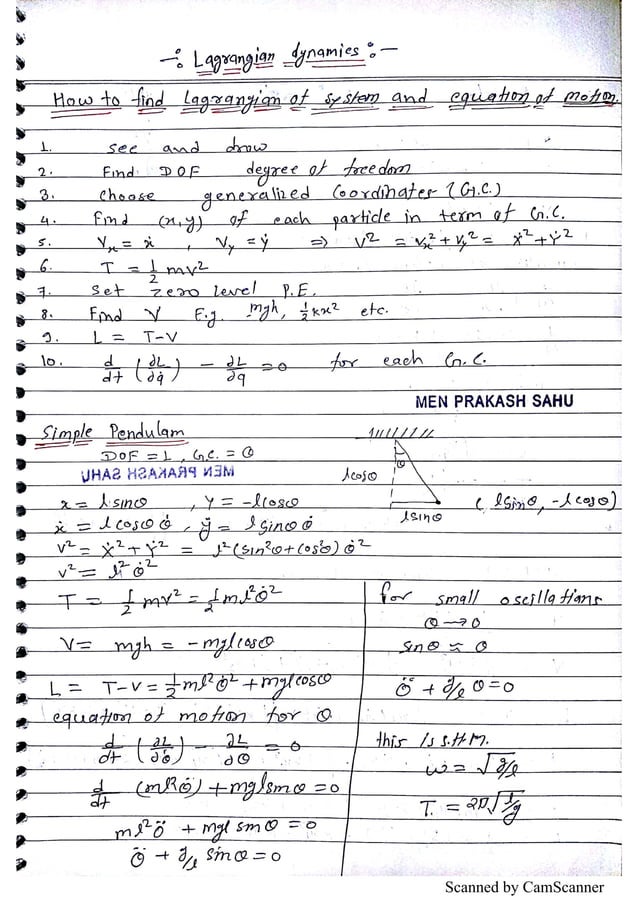 -: Lagrangian dynamics :-
How to find lagrangian of system and equation of motion.
1. see and draw
2. Find DOF degree of freedom
3. choose generalized coordinates (G.C.)
4. find (x,y) of each particle in term of G.C.
5. Vₓ = ẋ , Vᵧ = ẏ ⇒ v² = vₓ² + vᵧ² = ẋ² + ẏ²
6. T = ½ mv²
7. set zero level P.E.
8. Find V E.g. mgh, ½kx² etc.
9. L = T-V
10. d/dt (∂L/∂q̇) - ∂L/∂q = 0 for each G.C.
MEN PRAKASH SAHU
Simple Pendulam
DOF = 1 , G.C. = θ
MEN PRAKASH SAHU
θ
lcosθ
lsinθ
(lsinθ, -lcosθ)
x = lsinθ , y = -lcosθ
ẋ = lcosθ θ̇ , ẏ = lsinθ θ̇
v² = ẋ² + ẏ² = l²(sin²θ + cos²θ) θ̇²
v² = l² θ̇²
T = ½ mv² = ½ ml²θ̇²
V = mgh = -mglcosθ
L = T-V = ½ ml²θ̇² + mglcosθ
equation of motion for θ
d/dt (∂L/∂θ̇) - ∂L/∂θ = 0
d/dt (ml²θ̇) + mglsinθ = 0
ml²θ̈ + mgl sinθ = 0
θ̈ + g/l sinθ = 0
for small oscillations
θ → 0
sinθ ≈ θ
θ̈ + g/l θ = 0
this is S.H.M.
ω = √g/l
T. = 2π√l/g
Scanned by CamScanner